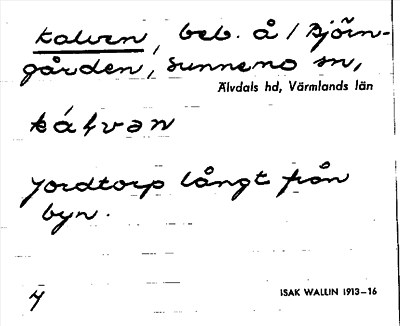 Kalven, beb. å / Björn-
gården, Sunnemo sn,
Älvdals hd, Värmlands län
jordtorp långt från
byn.
ISAK WALLIN 1913–16